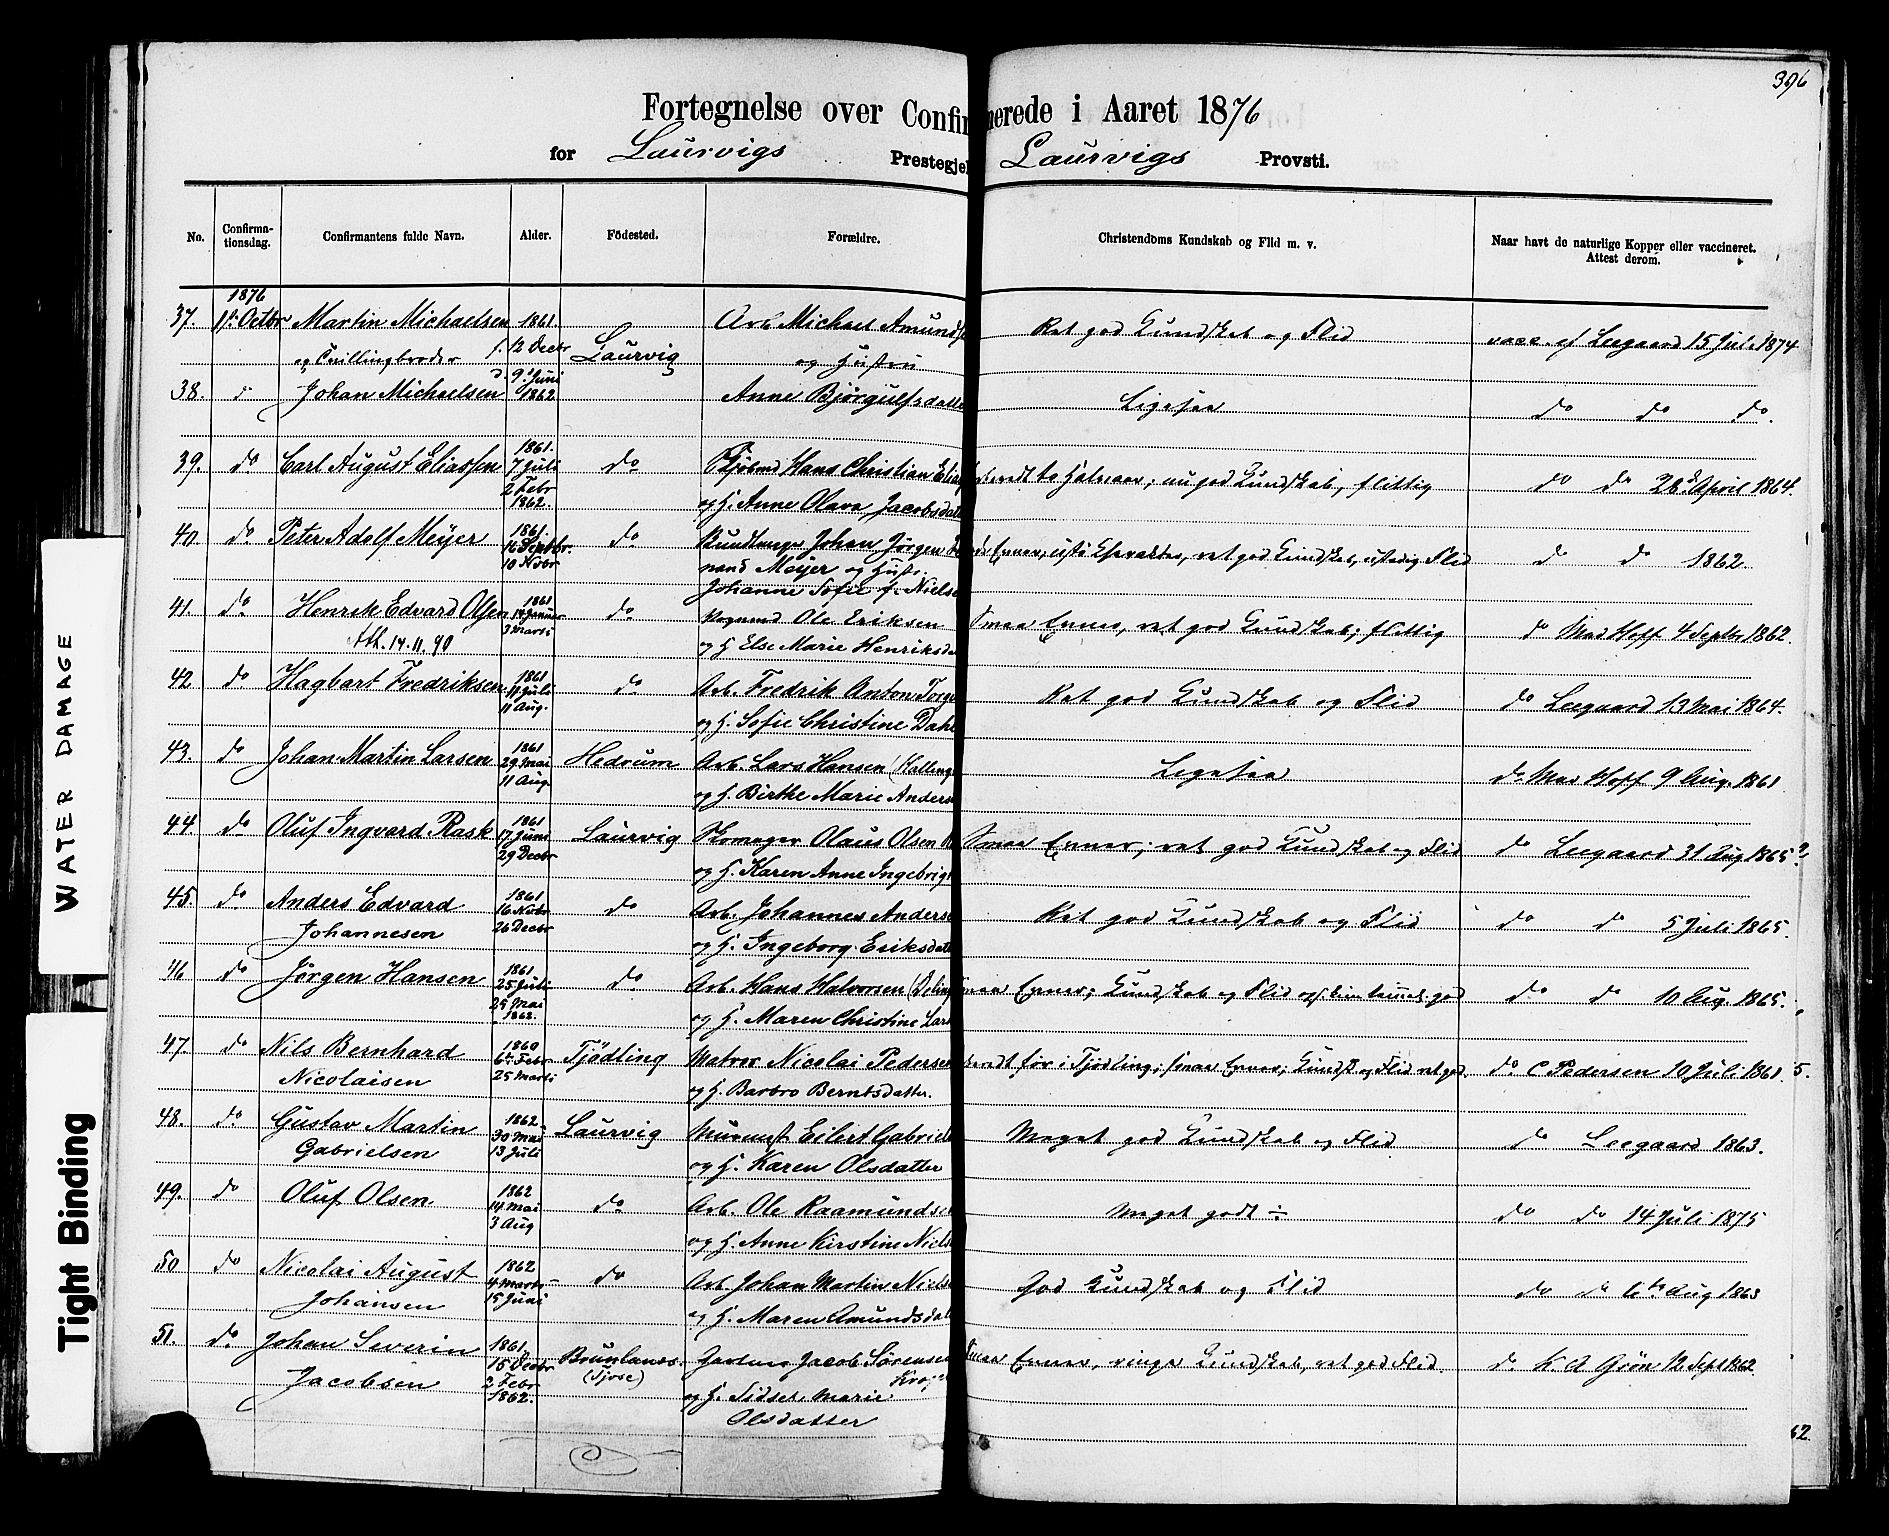 396
Fortegnelse over Confirmerede i Aaret 1876
for Laurvigs Prestegjel Laurvigs Provsti.
No. Confirma-tionsdag. Confirmantens fulde Navn. Alder. Födested. Forældre. Christendoms Kundskab og Flid m. v. Naar havt de naturlige Kopper eller vaccineret. Attest derom.
1876
37. 1ste Octbr Martin Michaelsen 1861 Arb. Michael Amunds Ret god Kundskab og Flid vacc. af Leegaard 15 Juli 1874
og Tvillingbroder f. 12 Decbr Laurvig og Hustru
d. 9 Juni
38. d Johan Michaelsen 1862 Anne Bjørgulfsdatte Ligesaa do do do
39. do Carl August Eliassen 1861 7 Juli do Hans Christian Elias flittig do do 28 April 1864.
2 Febr 1862. og H. Anne Olava Jacobsdatte
40. do Peter Adolf Meijer 1861 16 Septbr. do Johan Jørgen Evner, ret god Kundskab, Flid do do 1862.
10 Novbr nand Meijer og Hustr.
Johanne Sofie f. Niels
41. do Henrik Edvard Olsen 1861 14 Januar do Ole Eriksen Smaa Evner, ret god Kundskab; flittig do Mad Hoff 4 Septbr 1862.
Att. 14.11.90 3 Marts og H Else Marie Henriksda
42. do Hagbart Fredriksen 1861 11 Juli do Arb. Fredrik Anton Torge Ret god Kundskab og Flid do Leegaard 13 Mai 1864.
11 Aug. og H. Sofie Christine Dahl
43. do Johan Martin Larsen 1861 29 Mai Hedrum Arb. Lars Hansen Ligesaa do Mad Hoff 9 Aug. 1861
11 Aug og H. Birthe Marie Anders
44 do Oluf Ingvard Rask 1861 17 Juni Laurvig Skomager Olaus Olsen Smaa Evner; ret god Kundskab og Flid do Leegaard 31 Aug 1865
29 Decbr og H. Karen Anne Ingebrig
45. do Anders Edvard 1861 16 Novbr do Arb. Johannes Anders Ret god Kundskab og Flid do do 5 Juli 1865.
Johannesen 26 Decbr og H. Ingeborg Eriksdatt
46 do Jørgen Hansen 1861 25 Juli do Arb. Hans Halvorsen Smaa Evner; Kundskab og Flid god do do 10 Aug. 1865.
25 Mai 1862. og H. Maren Christine Lar
47. do Nils Bernhard 1860 6te Febr Tjødling Matros Nicolai Pedersen før i Tjødling; smaa Evner; Kundsk og Flid ret god. do C Pedersen 10 Juli 1861 5.
Nicolaisen 25 Marts og H. Barbro Berntsdatter.
48. do Gustav Martin 1862 30 Mai Laurvig Murmest Eilert Gabriel Meget god Kundskab og Flid do Leegaard 1863.
Gabrielsen 13 Juli og H. Karen Olsdatter
49. do Oluf Olsen 1862 14 Mai do Arb. Ole Raamundse Meget godt ÷ do do 14 Juli 1875
3 Aug og H. Anne Kirstine Niels
50 do Nicolai August 1862 4 Marts do Arb. Johan Martin Niels God Kundskab og Flid do do 6te Aug 1863
Johansen 15 Juni og H. Maren Amundsdat
51. do Johan Severin 1861 15 Decbr Brunlanes. Jacob Sørensen Smaa Evner, ringe Kundskab, ret god Flid. do K. A Grøn 12 Sept 1862.
Jacobsen 2 Febr 1862. (Tjose) og H. Sidsel Marie
Olsdatter
62.
WATER DAMAGE
Tight Binding